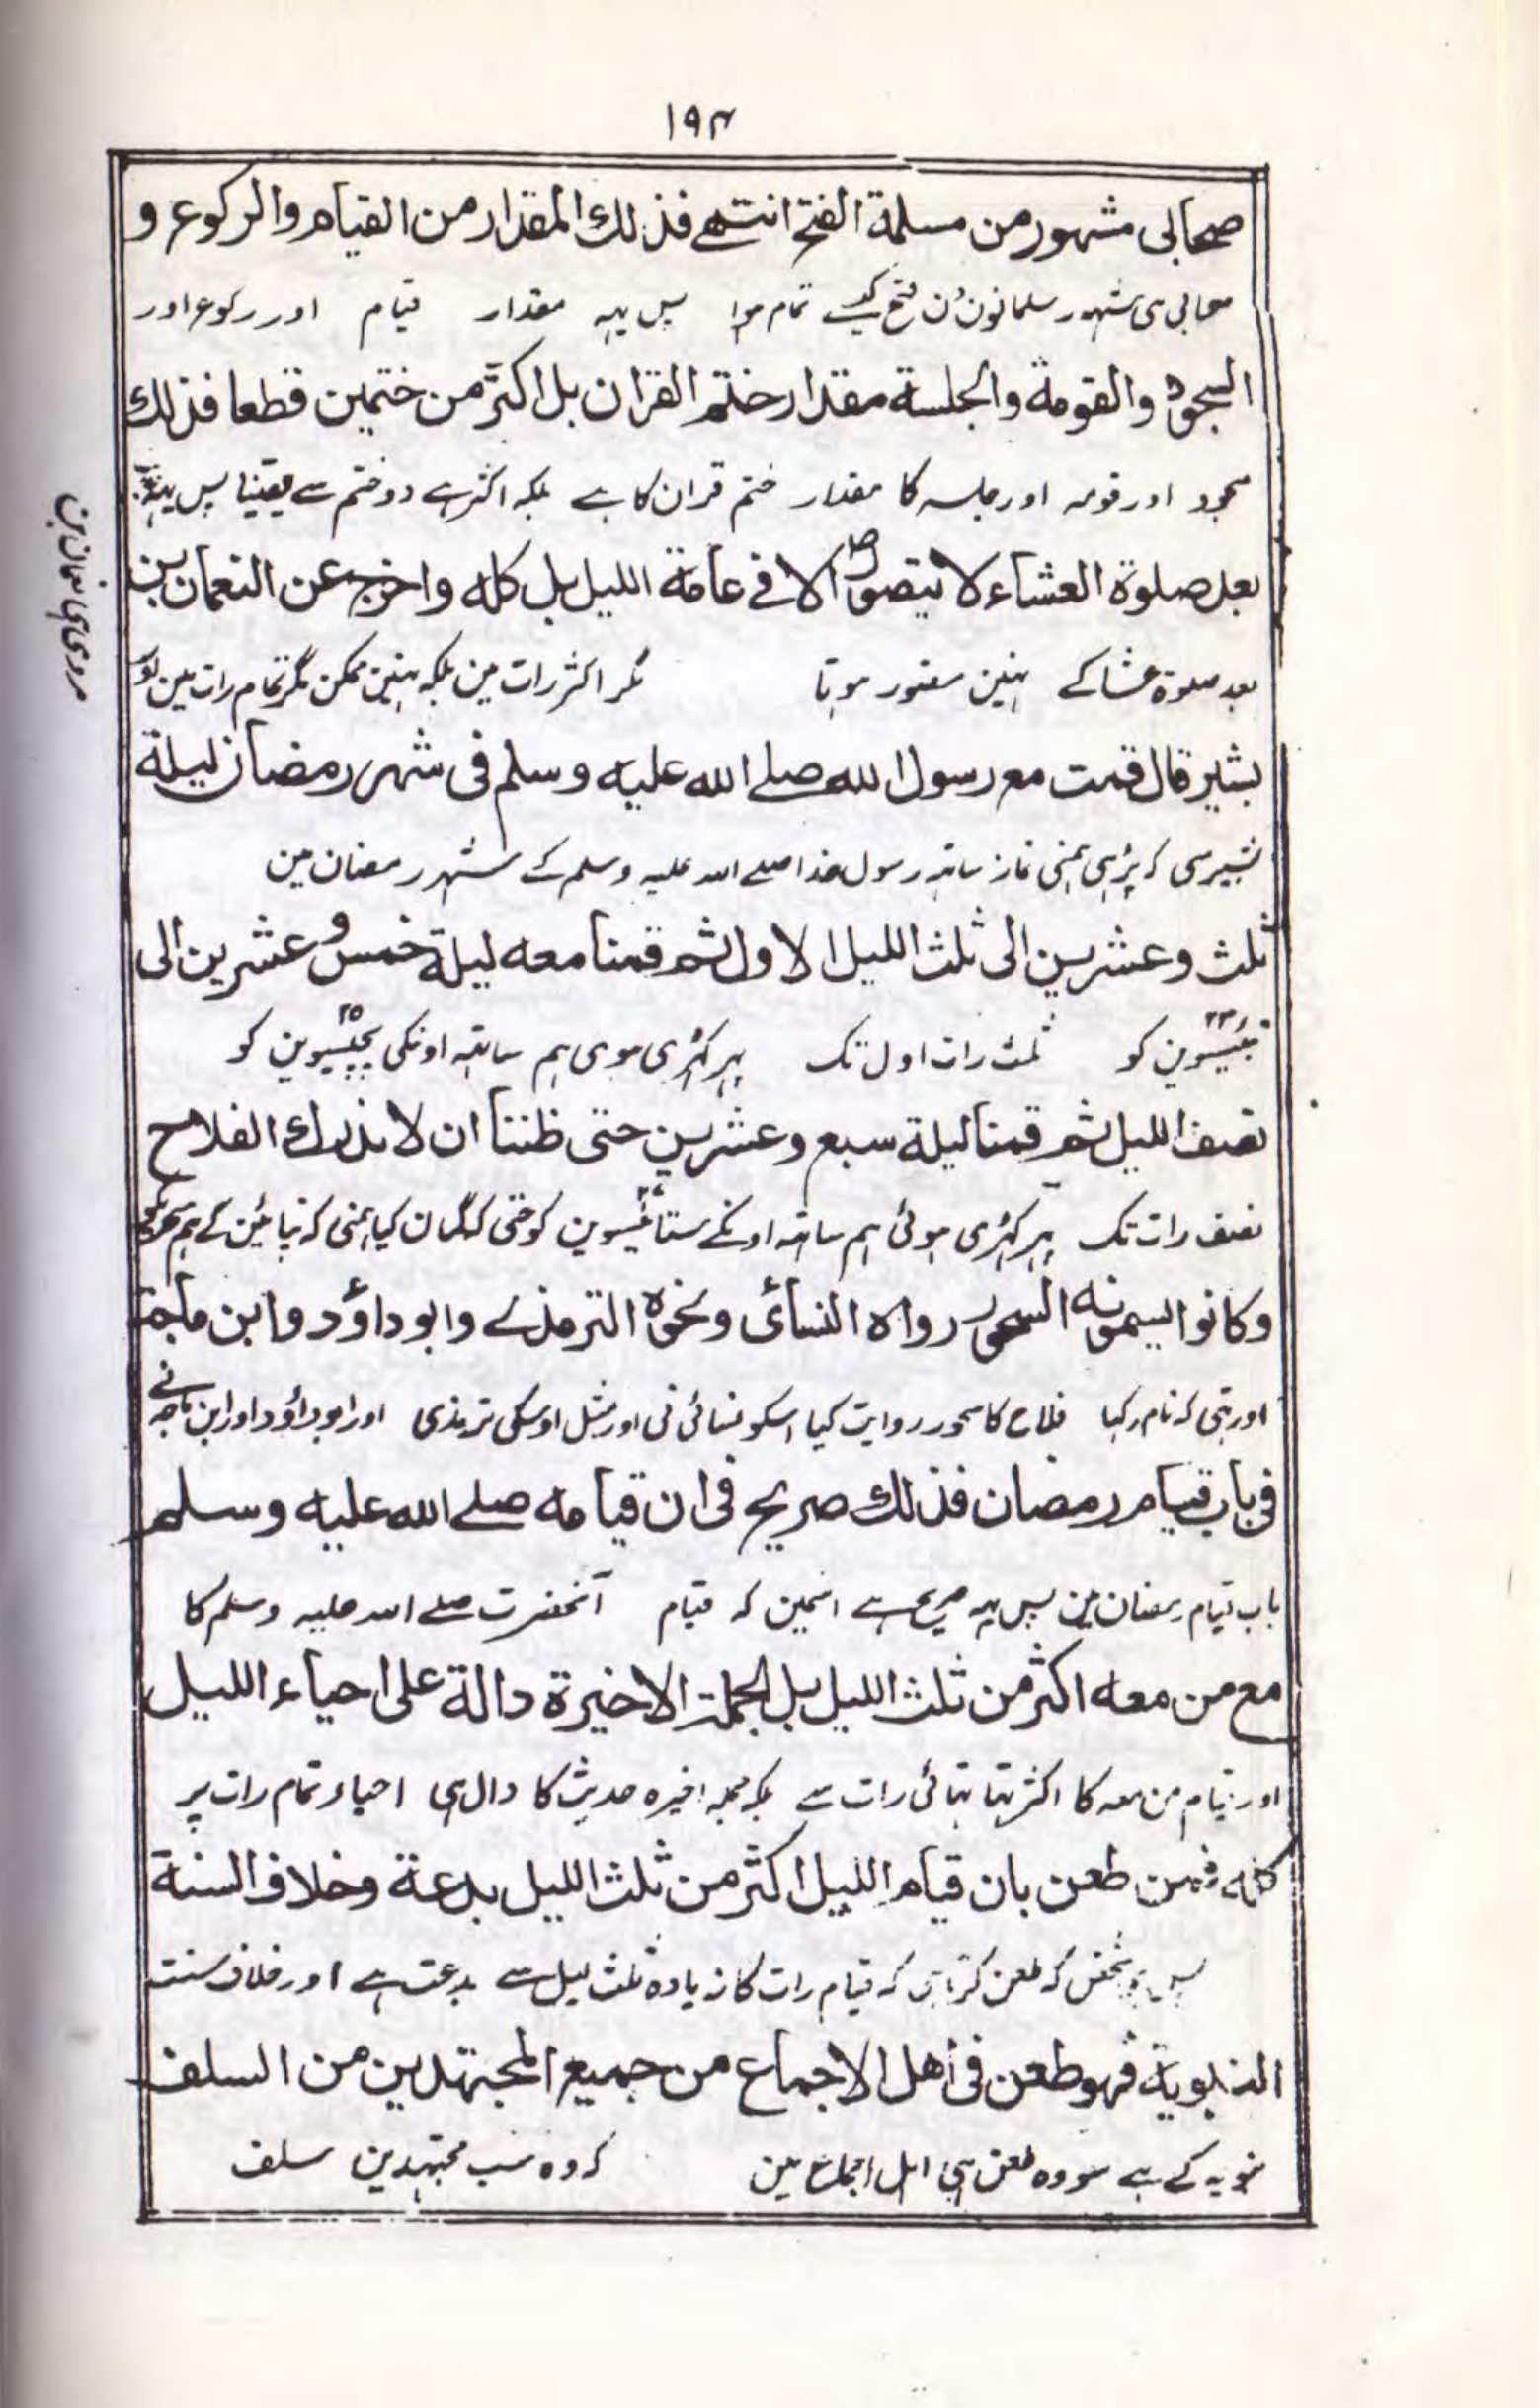 ۱۹۴
صحابی مشهور من مسلمة الفتح انتهے فذلك المقدار من القیام والرکوع و
صحابی ہی مشہور مسلمانون فتح تمام ہوا پس یہہ مقدار قیام اور رکوع اور
السجود والقومة والجلسة مقدار ختم القران بل اکثر من ختمین قطعا فذلك
سجود اور قومہ اور جلسہ کا مقدار ختم قران کا ہے بلکہ اکثر ہے دو ختم سے یقینا پس یہہ
بعد صلوة العشاء لا یتصور الا فے عامة اللیل بل کله واخرج عن النعمان بن
بعد صلوة عشا کے نہین متصور ہوتا مگر اکثر رات مین بلکہ نہین ممکن مگر تمام رات مین اور
مروی ہی نعمان بن
بشیر قال قمت مع رسول الله صلے الله علیه وسلم فی شهر رمضان لیلة
بشیر سی کہ پڑہی ہمنی نماز ساتہہ رسول خدا صلے اللہ علیہ وسلم کے شہر رمضان مین
ثلث وعشرین الی ثلث اللیل الاول ثم قمنا معه لیلة خمس وعشرین الی
۲۳ تیئسوین کو ثلث رات اول تک پہر کہڑی ہوی ہم ساتہہ اونکی ۲۵ پچیسیوین کو
نصف اللیل ثم قمنا لیلة سبع وعشرین حتی ظننا ان لا ندرك الفلاح
نصف رات تک پہر کہڑی ہوئی ہم ساتہہ اونکے ۲۷ ستائیسوین کو حتی کہ گمان کیا ہمنی کہ نپائین گے ہم
وکانوا یسمونه السحور رواه النسائی ونحوه الترمذے وابو داؤد وابن ماجة
اور تہی کہ نام رکہا فلاح کا سحور روایت کیا اسکو نسائی نی اور مثل اوسکی ترمذی اور ابو داؤد اور ابن ماجہ نے
فی باب قیام رمضان فذلك صریح فی ان قیامه صلے الله علیه وسلم
باب قیام رمضان مین پس یہہ صریح ہے اسمین کہ قیام آنحضرت صلے اللہ علیہ وسلم کا
مع من معه اکثر من ثلث اللیل بل الجملة الاخیرة دالة علی احیاء اللیل
اور قیام من معہ کا اکثر تہا تہائی رات سے بلکہ جملہ اخیرہ حدیث کا دال ہی احیاء تمام رات پر
کله فمن طعن بان قیام اللیل اکثر من ثلث اللیل بدعة وخلاف السنة
پس جو شخص کہ طعن کرتا ہی کہ قیام رات کا زیادہ ثلث لیل سے بدعت ہے اور خلاف سنت
النبویة فهو طعن فی اهل الاجماع من جمیع المجتهدین من السلف
نبویہ کے ہے سو وہ طعن ہی اہل اجماع مین کہ وہ سب مجتہدین سلف